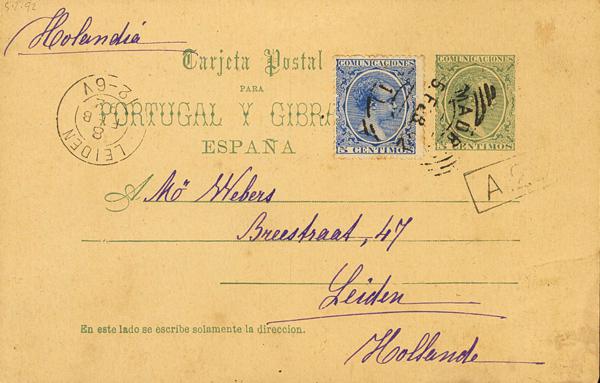 5.2.92
Holandia
Tarjeta Postal
PARA
PORTUGAL Y GIBRA
ESPAÑA
COMUNICACIONES
5 CENTIMOS
COMUNICACIONES
5 CENTIMOS
5 FEB 92
MADRID
LEIDEN
8
12-6V
A
A Mº Webers
Breestraat, 47
Leiden
Hollande
En este lado se escribe solamente la direccion.